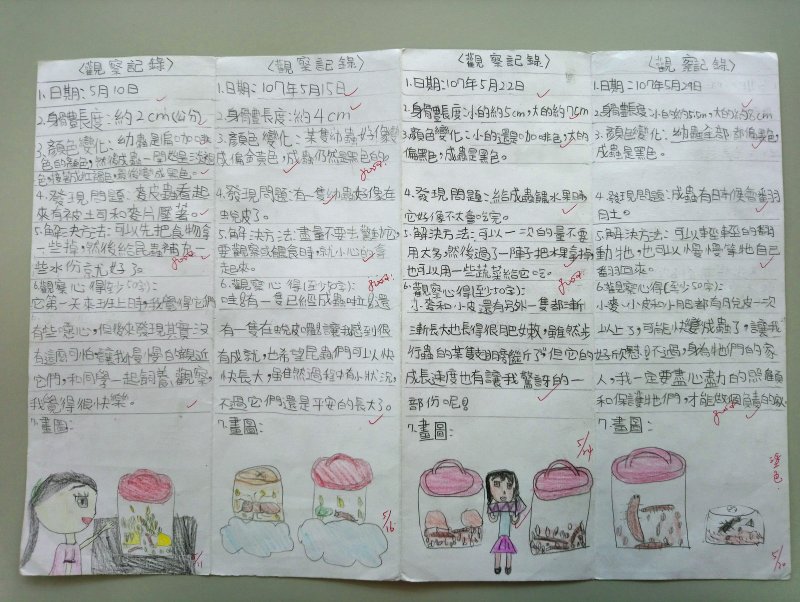 〈觀察記錄〉
1.日期:5月10日
2.身體長度:約2cm(公分)
3.顏色變化:幼蟲是偏咖啡
色的顏色,然後成蟲一開始是淡粉
色,後變成紅褐色,最後變成黑色。
4.發現問題:麥皮蟲看起
來有被土司和麥片壓著。
5.解決方法:可以先把食物拿
一些掉,然後給昆蟲補充一
些水份就好了。
6.觀察心得(至少50字):
它第一天來班上時,我覺得它們
有些噁心,但後來發現其實沒
有這麼可怕,讓我慢慢的親近
它們,和同學一起飼養、觀察,
我覺得很快樂。
7.畫圖:
5/11
〈觀察記錄〉
1.日期:107年5月15日
2.身體長度:約4cm
3.顏色變化:某隻幼蟲好像變
成偏金黃色,成蟲仍然是黑色的。
good!
4.發現問題:有一隻幼蟲好像在
蛻皮了。
5.解決方法:盡量不要去動它,
要觀察或餵食時,就小心的拿
起來。
good!
6.觀察心得(至少50字):
哇!有一隻已經成蟲啦!還
有一隻在蛻皮喔!讓我感到很
有成就,也希望昆蟲們可以快
快長大,雖然過程中有小狀況,
不過它們還是平安的長大了。
7.畫圖:
5/16
〈觀察記錄〉
1.日期:107年5月22日
2.身體長度:小的約5cm,大的約7.5cm
3.顏色變化:小的還是咖啡色,大的
偏黑色,成蟲是黑色。
4.發現問題:給成蟲餵水果時,
它好像不太會吃完。
5.解決方法:可以一次的量不要
用太多,然後過了一陣子把水果拿掉,
也可以用一些蔬菜給它吃。
good!
6.觀察心得(至少50字):
小麥和小皮還有另外一隻都漸
漸長大也長得很肥女敕,雖然步
行蟲的某隻翅膀斷了,但它的
成長速度也有讓我驚訝的一
部份呢!
7.畫圖:
5/24
〈觀察記錄〉
1.日期:107年5月29日
2.身體長度:小的約5.5cm,大的約8cm
3.顏色變化:幼蟲全部都偏黑色,
成蟲是黑色。
4.發現問題:成蟲有時候會翻
肚。
5.解決方法:可以輕輕的翻
動牠,也可以慢慢等牠自己
翻回來。
6.觀察心得(至少50字):
小麥、小皮和小肥都有脫皮一次
以上了,可能快變成蟲了,讓我
好欣慰!不過,身為牠們的家
人,我一定要盡心盡力的照顧
和保護牠們,才能做個負責的
good!
7.畫圖:
塗色!
5/30